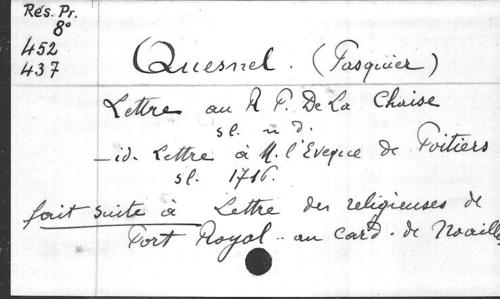 Rés. Pr.
8°
452
437
Quesnel. (Pasquier)
Lettre au R P. De La Chaise
sl. n d.
_ id. Lettre à M. l'Eveque de Poitiers
sl. 1716.
fait suite à Lettre des religieuses de
Port Royal .. au card. de Noaill